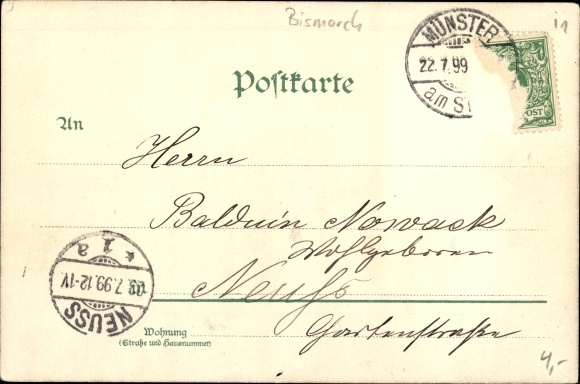 Bismarck
MÜNSTER
22.7.99
am St
OST
Postkarte
An
Herrn
Balduin Nowack
Wohlgeboren
Neuss
Gartenstraße
* 1 a
7.99.12-1V.
NEUSS
Wohnung
(Straße und Hausnummer)
4,-